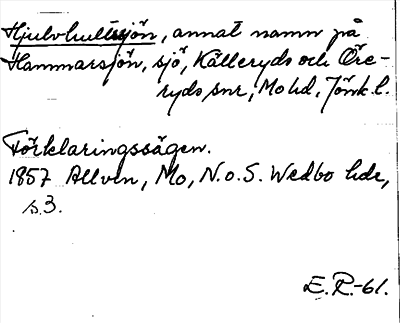 Hjulvhultssjön, annat namn på
Hammarsjön, sjö, Källeryds och Öre-
ryds snr, Mo hd, Jönk.l.
Förklaringssägen.
1857 Allvin, Mo, N.o.S. Wedbo hdr,
s.3.
E.R.-61.